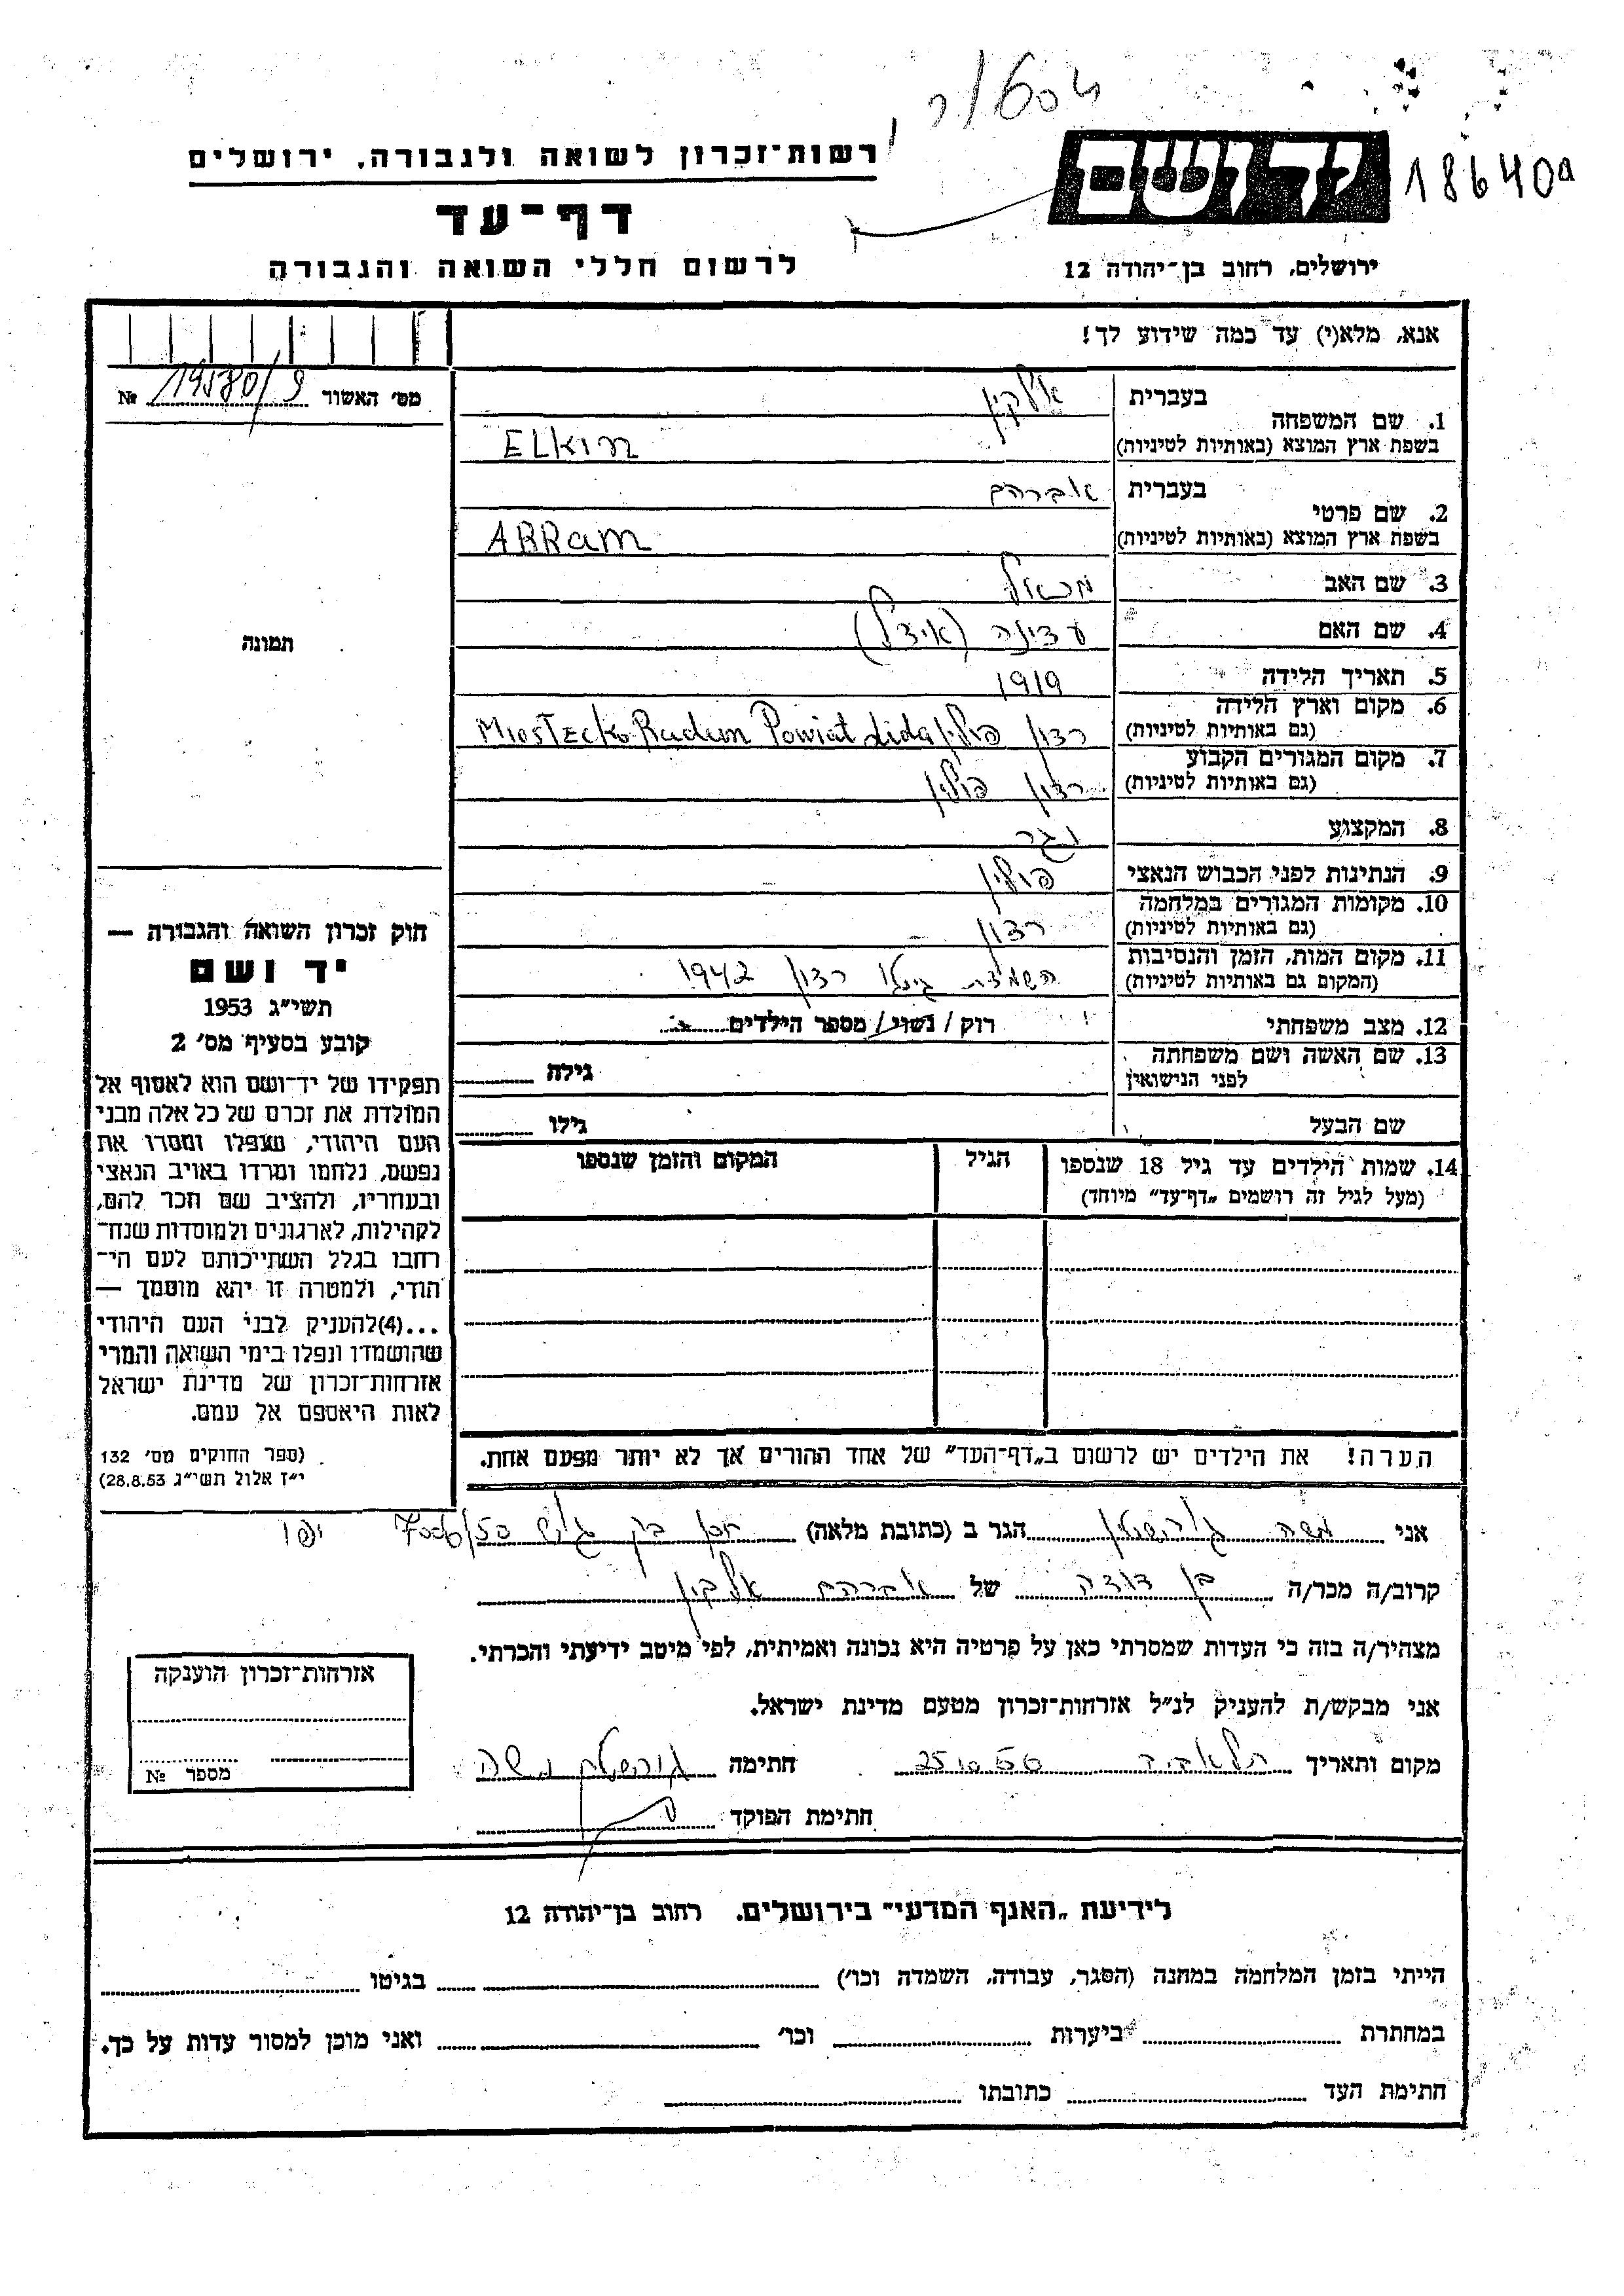 186400
יד ושם
ירושלים, רחוב בן־יהודה 12
רשות־זכרון לשואה ולגבורה, ירושלים
דף־עד
לרשום חללי השואה והגבורה
אנא, מלא(י) עד כמה שידוע לך!
מס׳ האשור 19580/9 №
בעברית אלקין
1. שם המשפחה
בשפת ארץ המוצא (באותיות לטיניות) ELKIN
בעברית אברהם
2. שם פרטי
בשפת ארץ המוצא (באותיות לטיניות) ABRam
3. שם האב
4. שם האם עדינה (איידל)
5. תאריך הלידה 1919
6. מקום וארץ הלידה
(גם באותיות לטיניות) רדון פולין Miastecko Radun Powiat Lida
7. מקום המגורים הקבוע
(גם באותיות לטיניות) רדון פולין
8. המקצוע נגר
9. הנתינות לפני הכבוש הנאצי פולין
10. מקומות המגורים במלחמה
(גם באותיות לטיניות) רדון
11. מקום המות, הזמן והנסיבות
(המקום גם באותיות לטיניות) השמדת גיטו רדון 1942
12. מצב משפחתי רוק / נשוי / מספר הילדים
13. שם האשה ושם משפחתה
לפני הנישואין גילה
שם הבעל גילו
14. שמות הילדים עד גיל 18 שנספו הגיל המקום והזמן שנספו
(מעל לגיל זה רושמים „דף־עד״ מיוחד)
הערה! את הילדים יש לרשום ב„דף־העד״ של אחד ההורים אך לא יותר מפעם אחת.
תמונה
חוק זכרון השואה והגבורה —
יד ושם
תשי״ג 1953
קובע בסעיף מס׳ 2
תפקידו של יד־ושם הוא לאסוף אל
המולדת את זכרם של כל אלה מבני
העם היהודי, שנפלו ומסרו את
נפשם, נלחמו ומרדו באויב הנאצי
ובעוזריו, ולהציב שם וזכר להם,
לקהילות, לארגונים ולמוסדות שנח־
רבו בגלל השתייכותם לעם הי־
הודי, ולמטרה זו יהא מוסמך —
...(4)להעניק לבני העם היהודי
שהושמדו ונפלו בימי השואה והמרי
אזרחות־זכרון של מדינת ישראל
לאות היאספם אל עמם.
(ספר החוקים מס׳ 132
י״ז אלול תשי״ג 28.8.53)
אני משה הגר ב (כתובת מלאה) יפו
קרוב/ה מכר/ה בן דודה של אברהם אלקין
מצהיר/ה בזה כי העדות שמסרתי כאן על פרטיה היא נכונה ואמיתית, לפי מיטב ידיעתי והכרתי.
אני מבקש/ת להעניק לנ״ל אזרחות־זכרון מטעם מדינת ישראל.
מקום ותאריך תל אביב 25.10.56 חתימה משה
חתימת הפוקד
אזרחות־זכרון הוענקה
מספר №
לידיעת „האגף המדעי״ בירושלים, רחוב בן־יהודה 12
הייתי בזמן המלחמה במחנה (הסגר, עבודה, השמדה וכו׳) בגיטו
במחתרת ביערות וכו׳ ואני מוכן למסור עדות על כך.
חתימת העד כתובתו